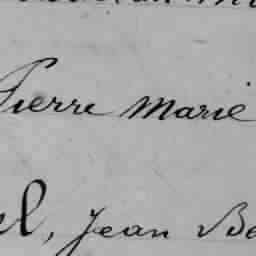 Pierre Marie
el, Jean Be